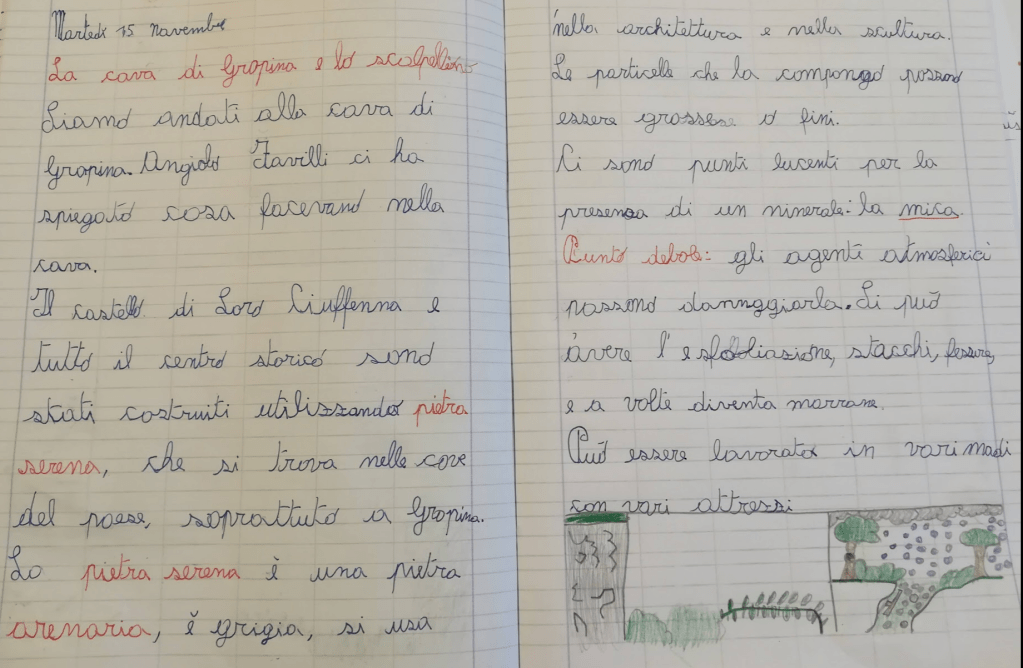 Martedì 15 novembre
La cava di Gropina e lo scalpellino
Siamo andati alla cava di
Gropina. Angiolo Favilli ci ha
spiegato cosa facevano nella
cava.
Il castello di Loro Ciuffenna e
tutto il centro storico sono
stati costruiti utilizzando pietra
serena, che si trova nelle cave
del paese, soprattuto a Gropina.
La pietra serena è una pietra
arenaria, è grigia, si usa
nella architettura e nella scultura.
Le particelle che la compongo possono
essere grosse o fini.
Ci sono punti lucenti per la
presenza di un minerale: la mica.
Punto debole: gli agenti atmosferici
possono danneggiarla. Si può
avere l'esfoliasione, stacchi, fessure,
e a volte diventa marrone.
Può essere lavorato in vari modi
con vari attressi